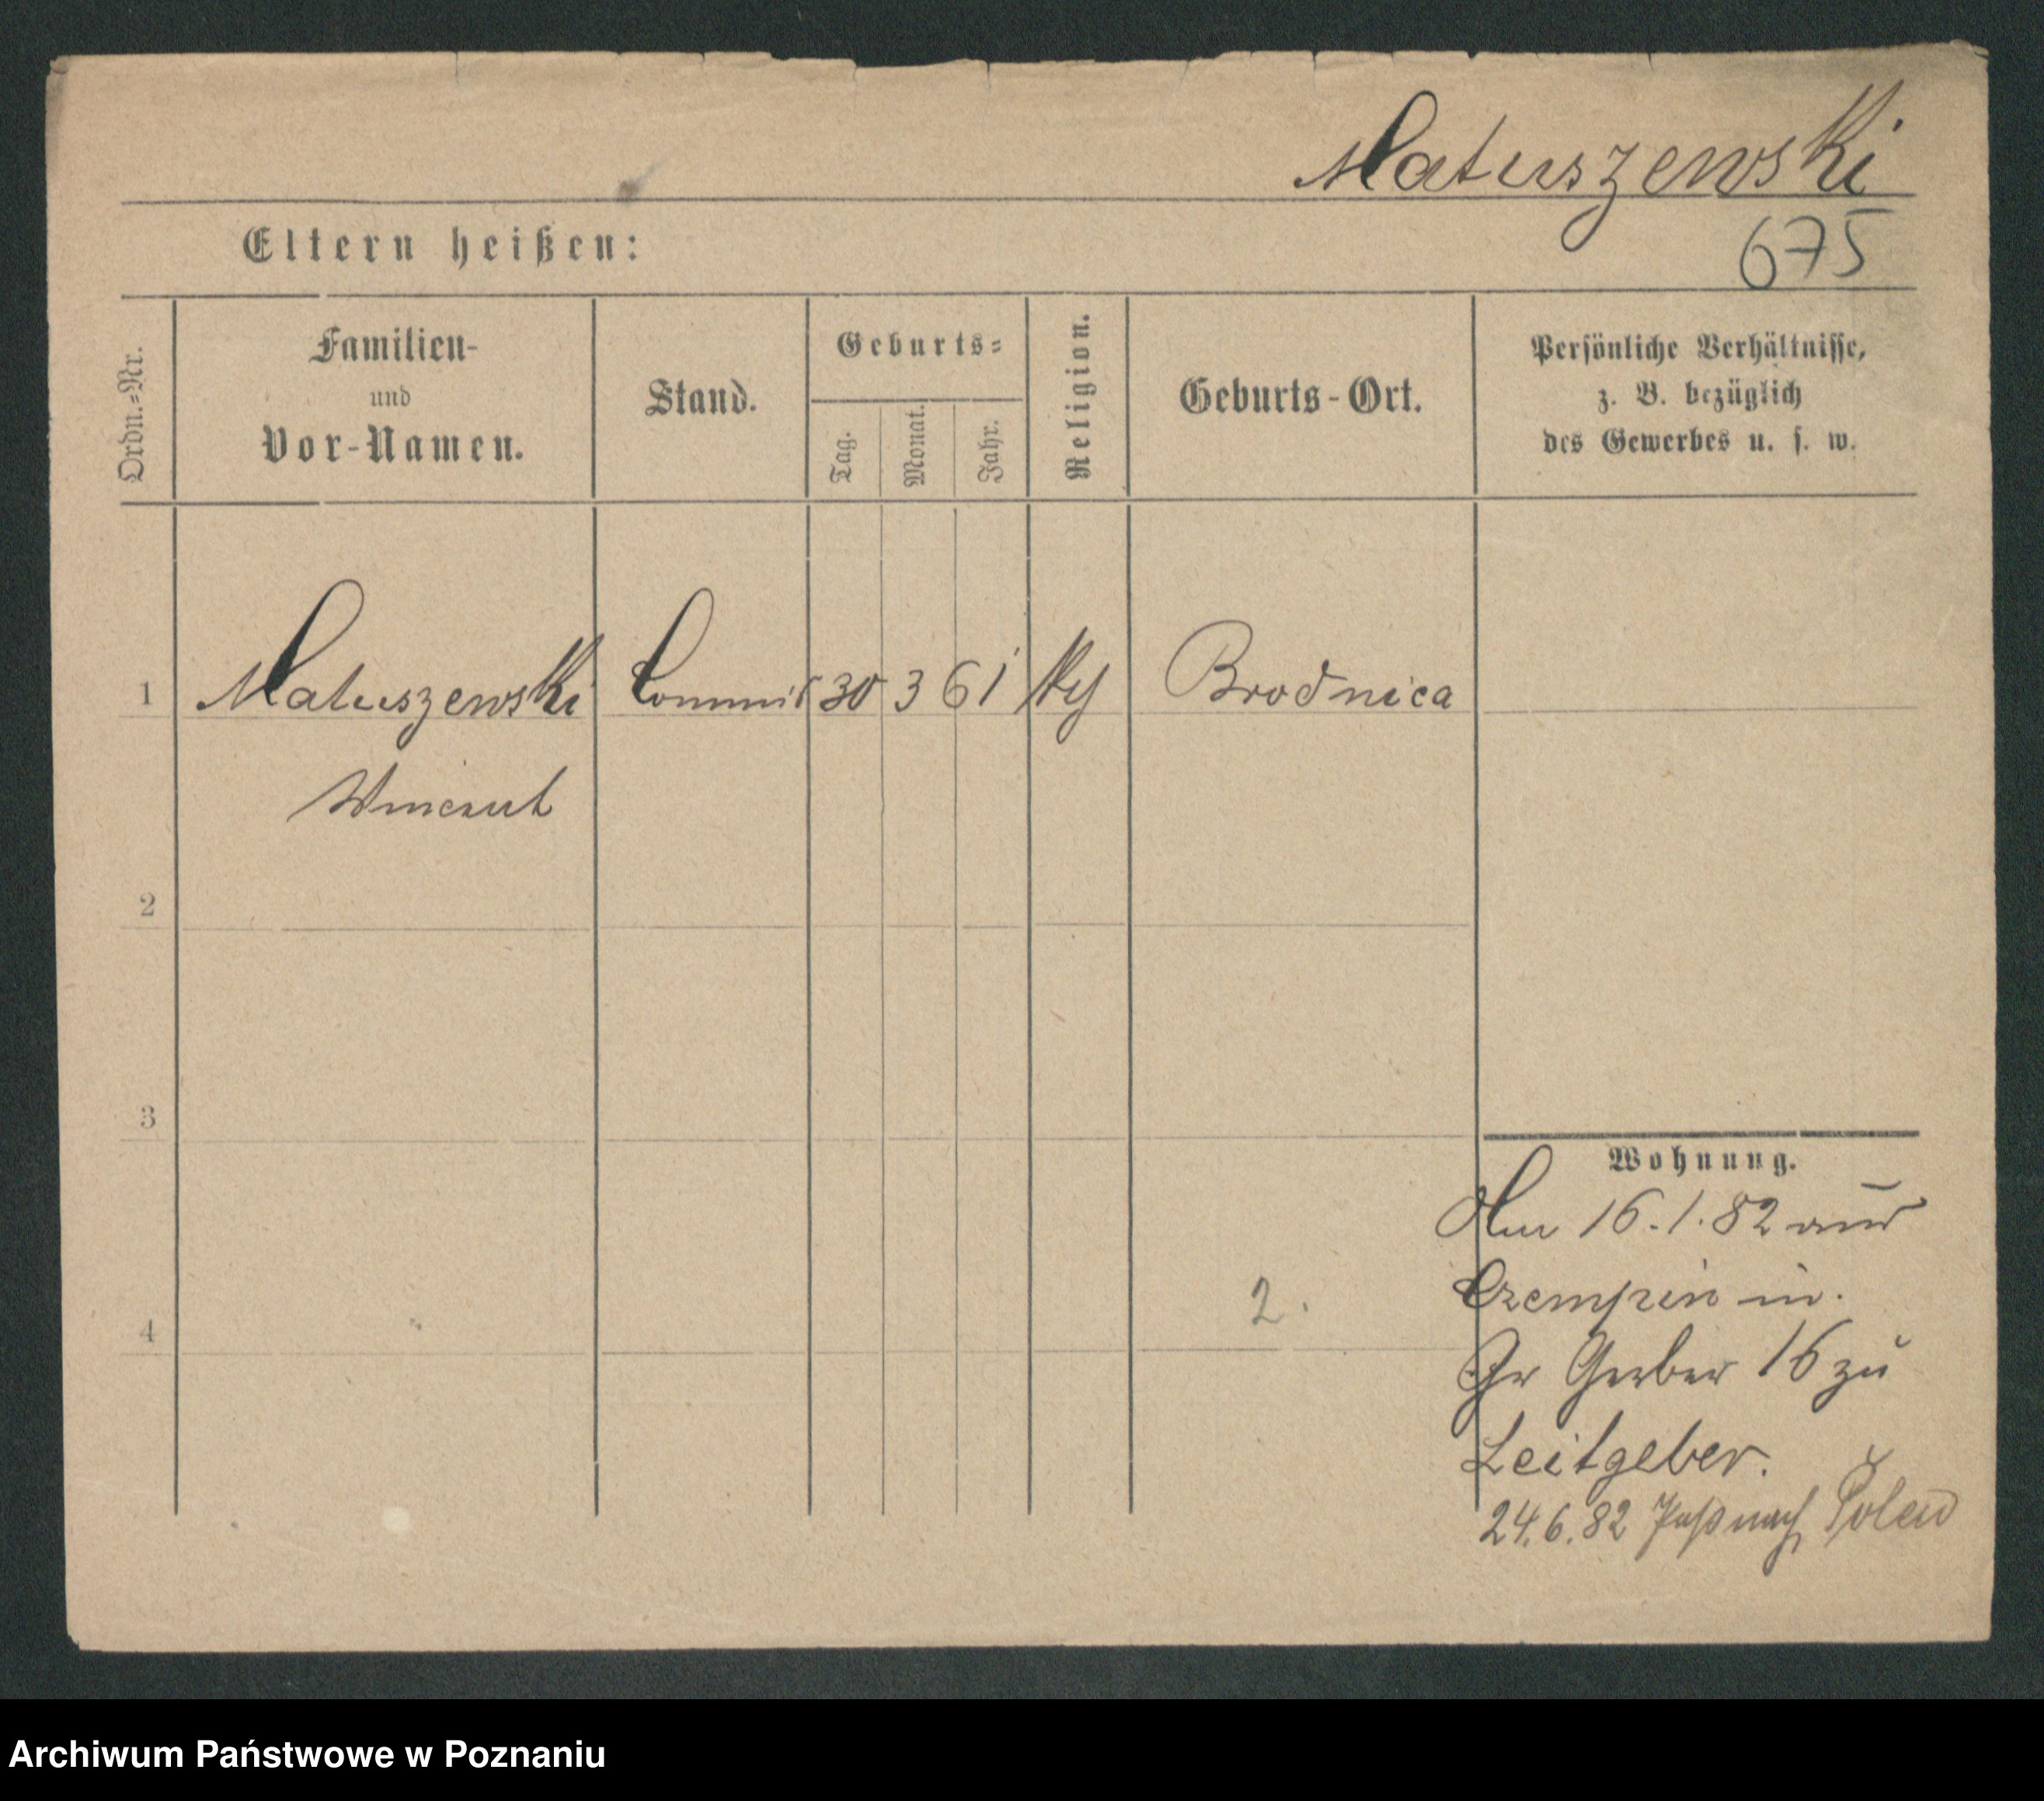 Matuszewski
675
Eltern heißen:
Ordn.=Nr.
Familien-
und
Vor-Namen.
Stand.
Geburts=
Tag.
Monat.
Jahr.
Religion.
Geburts-Ort.
Persönliche Verhältnisse,
z. B. bezüglich
des Gewerbes u. s. w.
1 Matuszewski Commis 30 3 61 Brodnica
Wincent
2
3
4
2.
Wohnung.
Am 16.1.82 aus
Czempin in.
Gr Gerber 16 zu
Leitgeber.
24.6.82 Paß nach Polen
Archiwum Państwowe w Poznaniu